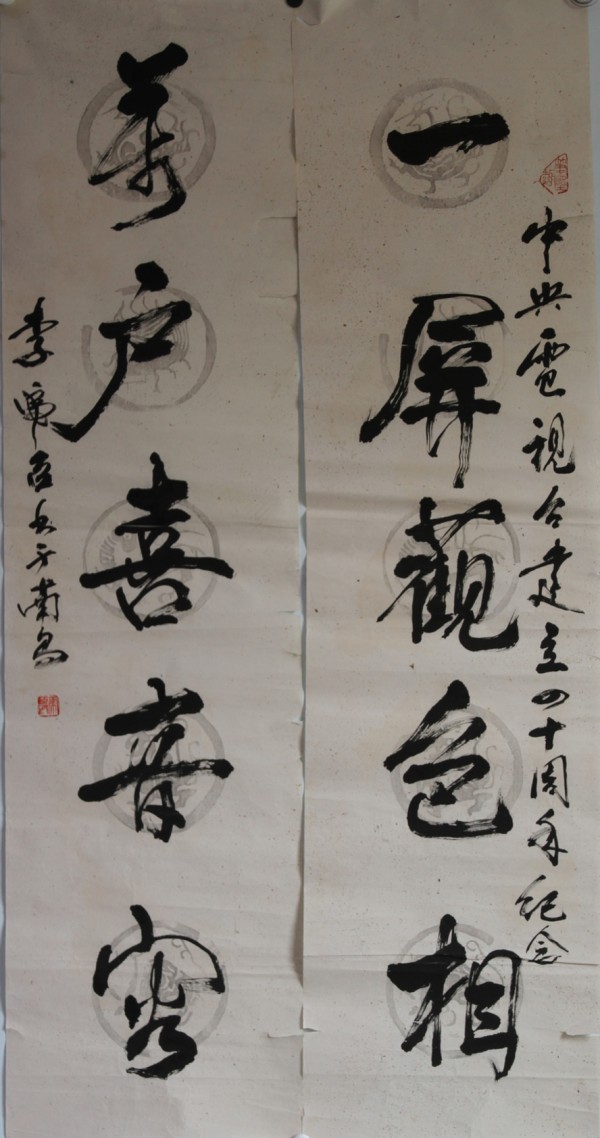 中央電視台建立四十周年紀念
一屏觀色相
萬戶喜音容
李 書于南昌